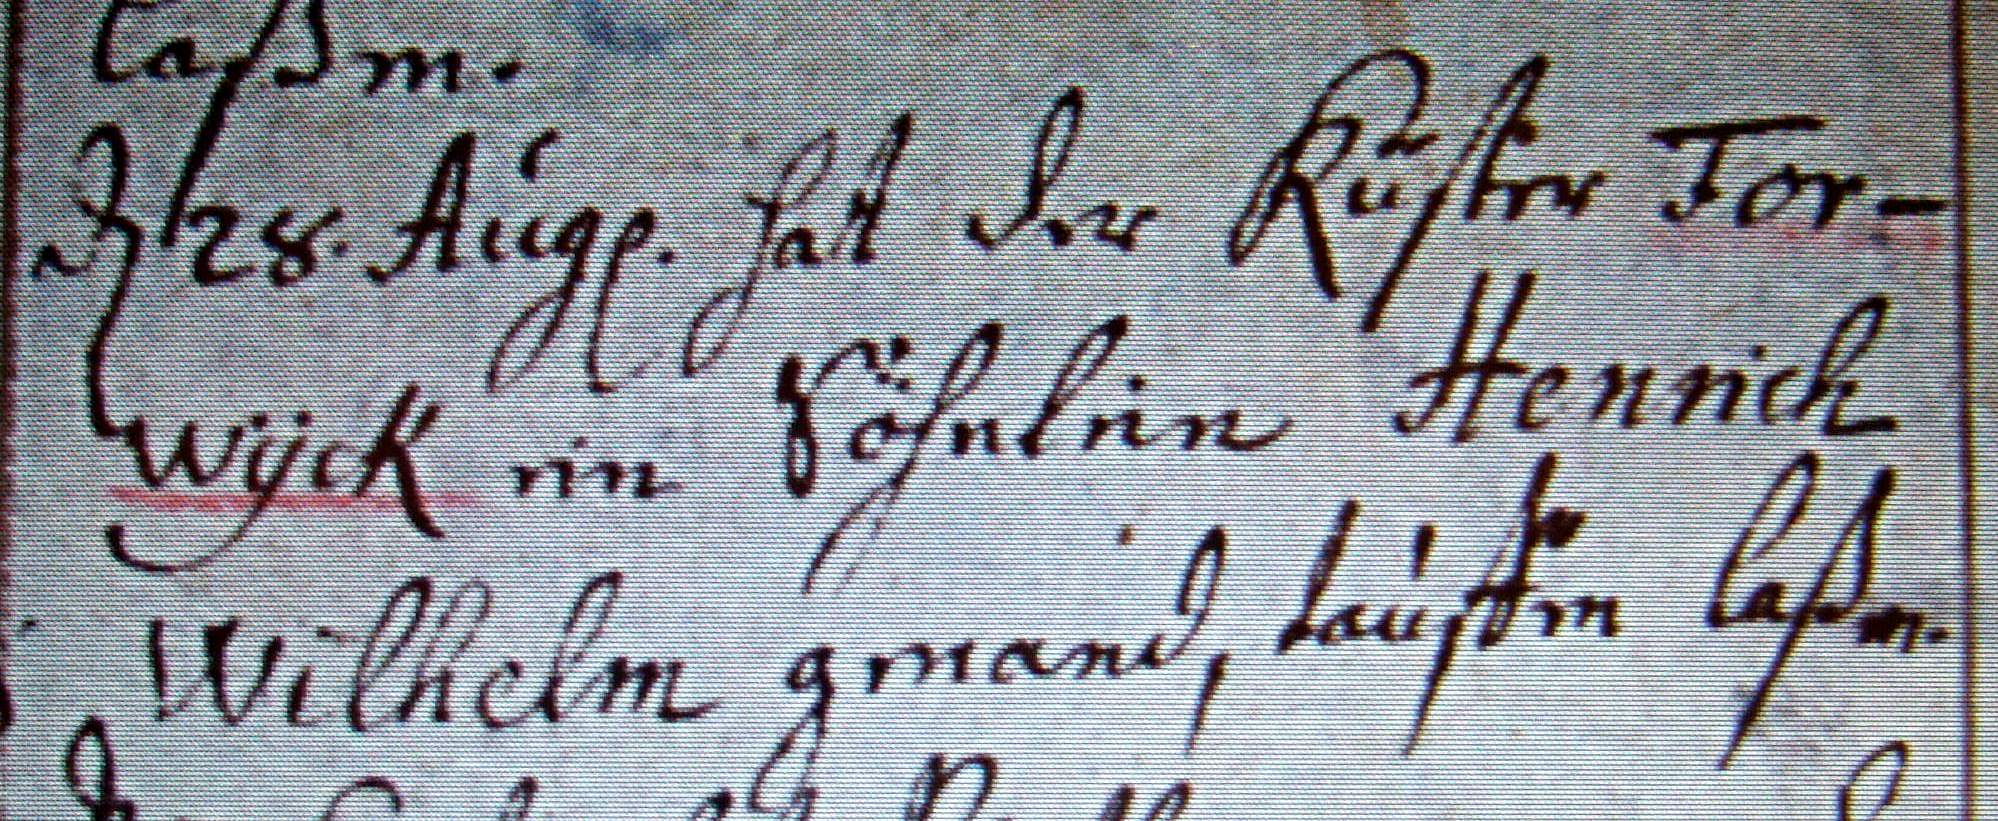 laßen.
28. Aug. hat der Küster Tor-
wÿck ein Söhnlein Henrich
Wilhelm genand, tauffen laßen.